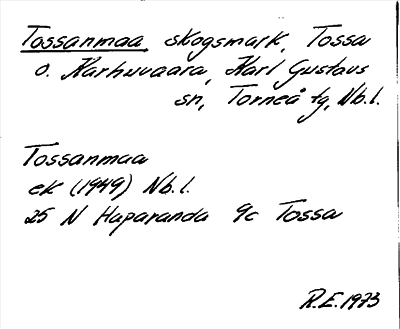 Tossanmaa, skogsmark, Tossa
o. Karhuvaara, Karl Gustavs
sn, Torneå tg, Nb.l.
Tossanmaa
ek (1949) Nb.l.
25 N Haparanda 9c Tossa
R.E. 1973